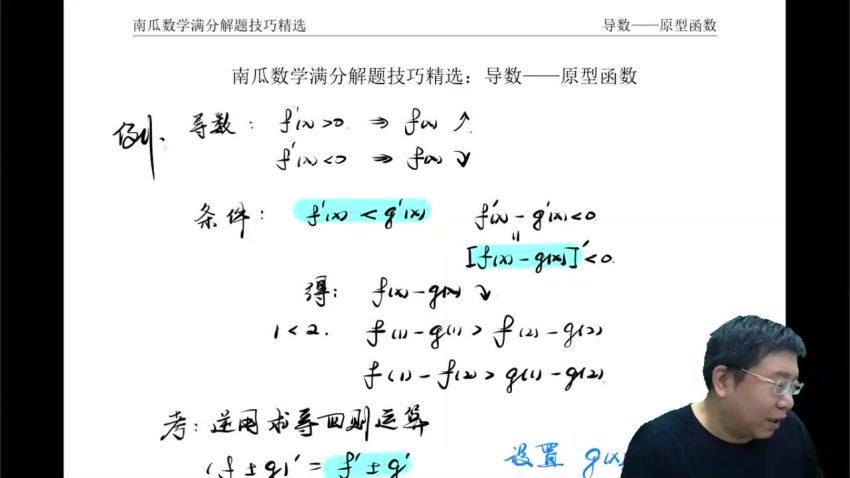 南瓜数学满分解题技巧精选 导数——原型函数
南瓜数学满分解题技巧精选：导数——原型函数
例. 导数: f'(x)>0 ⇒ f(x) ↗
f'(x)<0 ⇒ f(x) ↘
条件: f'(x) < g'(x) f'(x) - g'(x)<0
=
[f(x) - g(x)]'<0.
得: f(x) - g(x) ↘
1<2. f(1) - g(1) > f(2) - g(2)
f(1) - f(2) > g(1) - g(2)
考: 逆用求导四则运算
(f±g)' = f'±g' 设置 g(x)